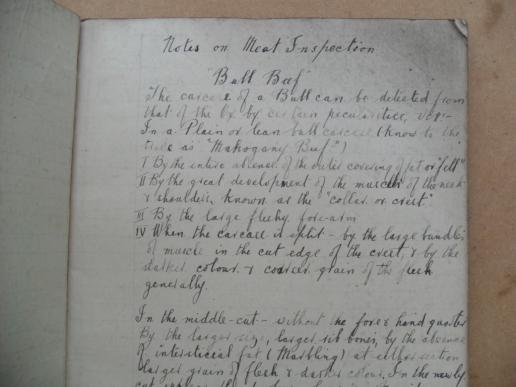 Notes on Meat Inspection
"Bull Beef"
"The carcase of a Bull can be detected from
that of the Ox by certain peculiarities, viz:-
In a Plain or lean bull carcase (know to the
trade as "Mahogany Beef")
I By the entire absence of the outer covering of fat or "fell"
II By the great development of the muscles of the neck
& shoulders, known as the "collar or crest"
III By the large fleshy fore-arm
IV When the carcase is split - by the large bundles
of muscle in the cut edge of the crest, & by the
darker colour & coarser grain of the flesh
generally.
In the middle-cut - without the fore & hind quarter
By the larger size, larger rib bones, by the absence
of intersticial fat (Marbling) at either section
larger grain of flesh & darker colour. In the newly
cut